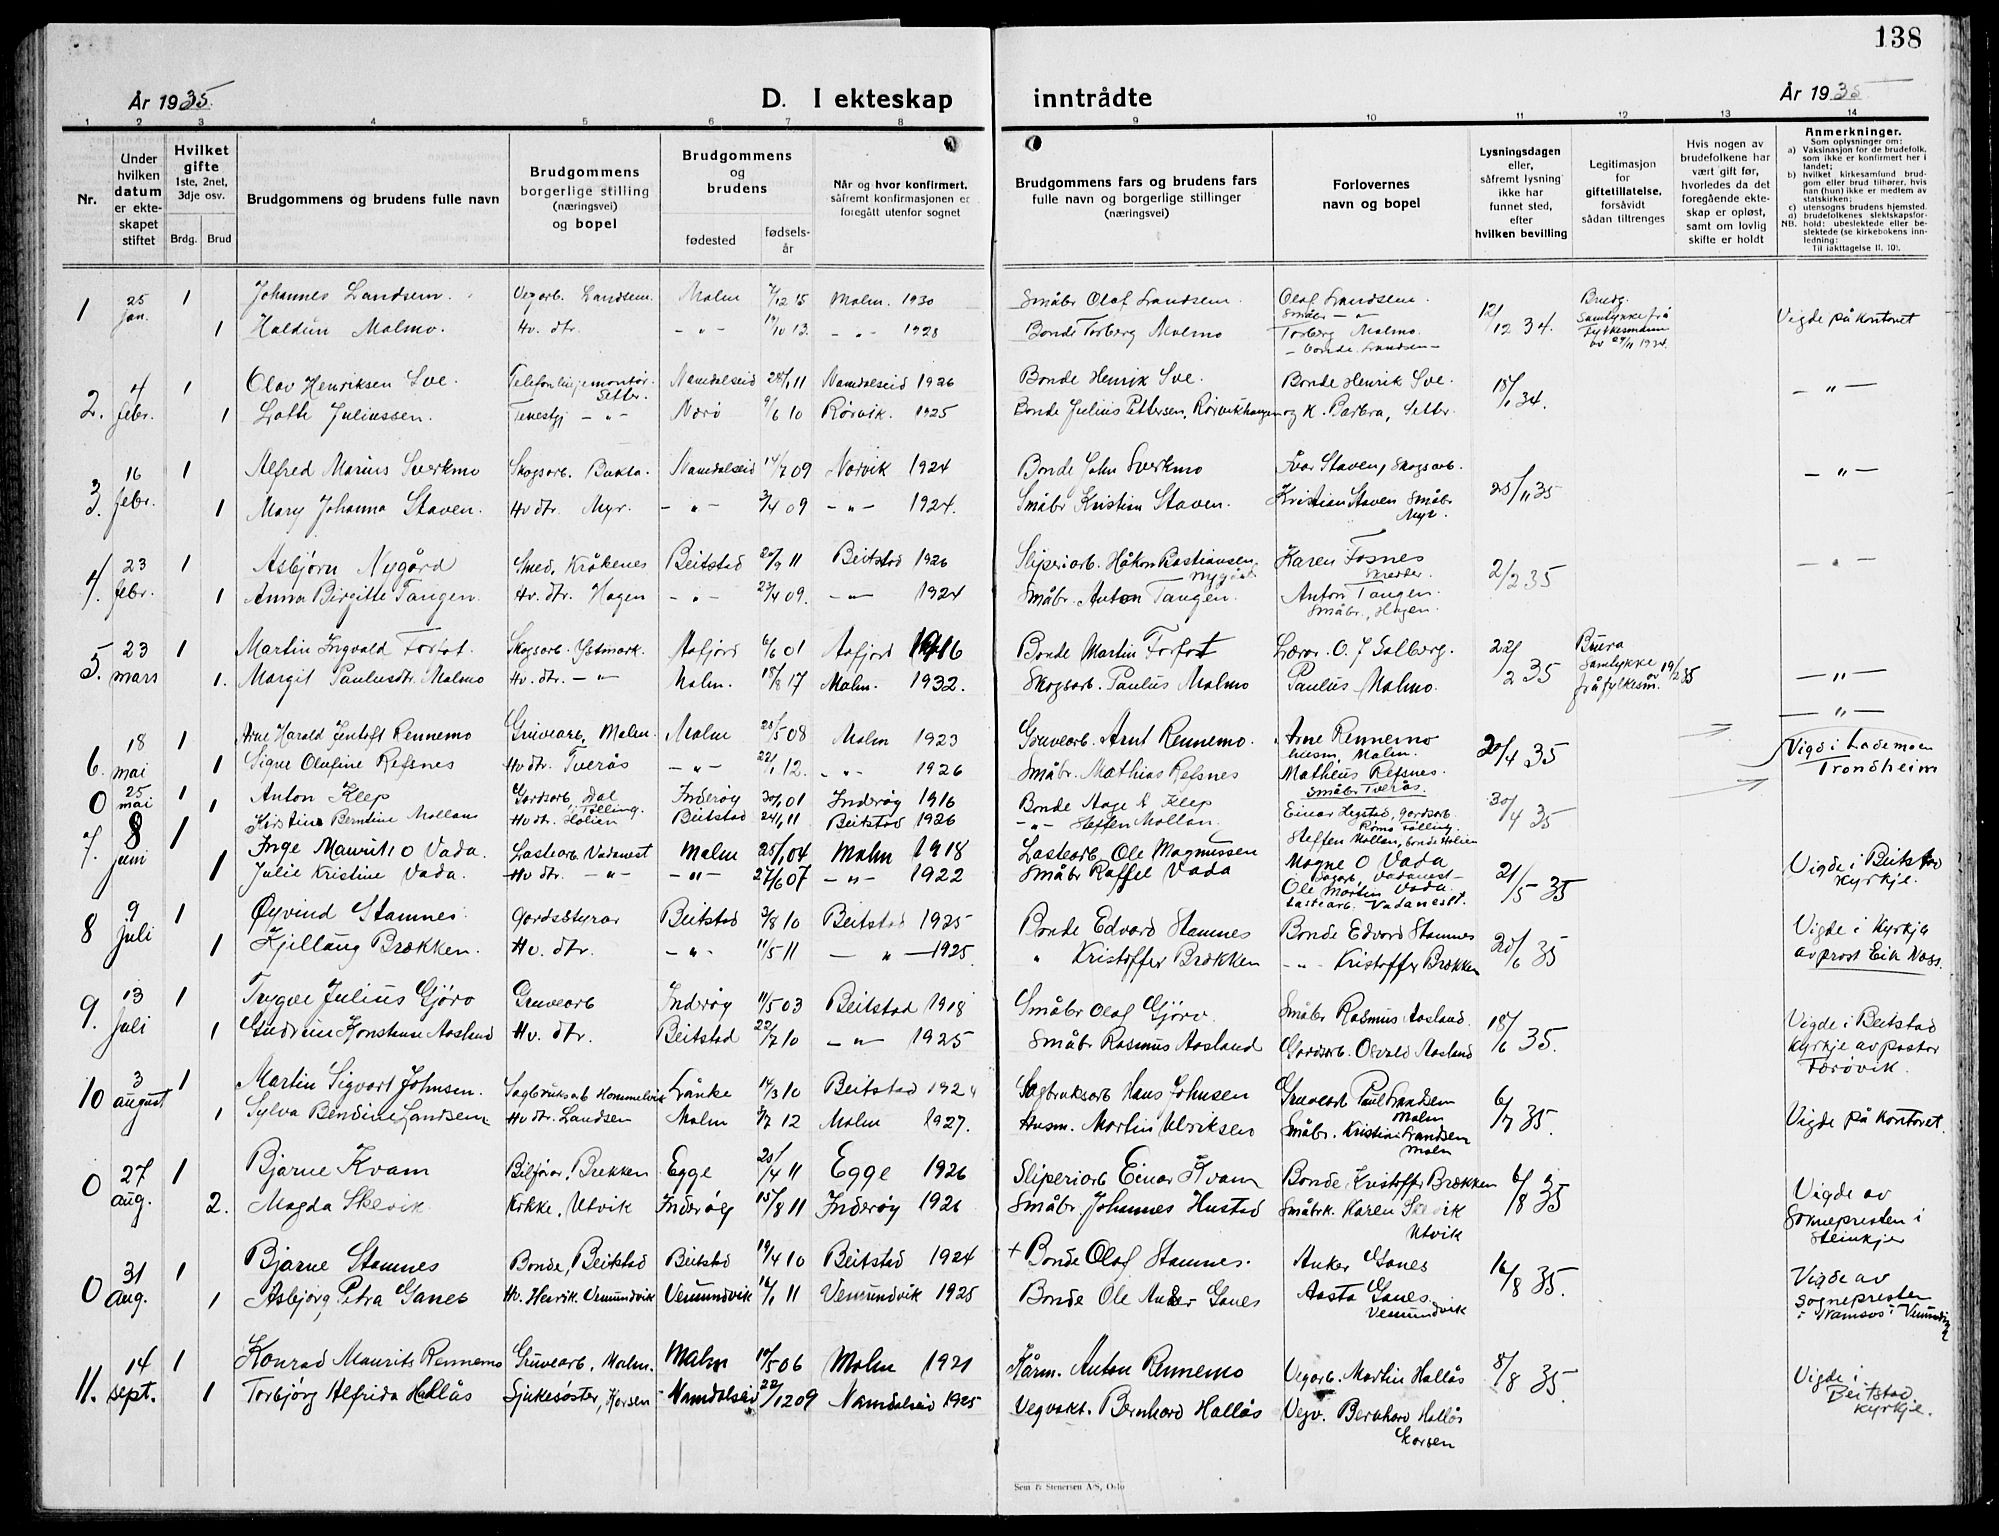 138
År 1935.
D. I ekteskap inntrådte
År 1935
1 2 3 4 5 6 7 8 9 10 11 12 13 14
Nr.
Under hvilken datum er ekteskapet stiftet
Hvilket gifte 1ste, 2net, 3dje osv.
Brdg. Brud
Brudgommens og brudens fulle navn
Brudgommens borgerlige stilling (næringsvei) og bopel
Brudgommens og brudens
fødested
fødselsår
Når og hvor konfirmert, såfremt konfirmasjonen er foregått utenfor sognet
Brudgommens fars og brudens fars fulle navn og borgerlige stillinger (næringsvei)
Forlovernes navn og bopel
Lysningsdagen eller, såfremt lysning ikke har funnet sted, efter hvilken bevilling
Legitimasjon for giftetillatelse, forsåvidt sådan tiltrenges
Hvis nogen av brudefolkene har vært gift før, hvorledes da det foregående ekteskap er opløst, samt om lovlig skifte er holdt
Anmerkninger.
Som oplysninger om:
a) Vaksinasjon for de brudefolk, som ikke er konfirmert her i landet;
b) hvilket kirkesamfund brudgom eller brud tilhører, hvis han (hun) ikke er medlem av statskirken;
c) utensogns brudens hjemsted.
d) brudefolkenes slektskapsforhold: ubeslektede eller beslektede (se kirkebokens innledning:
NB.
Til iakttagelse II, 10).
1 25 jan. 1 Johannes Landsem. Vegarb. Landsem. Malm 7/12 15 Malm. 1930 Småbr Olaf Landsem. Olaf Landsem. 12/12 34. Brudg. Samtykke frå Fylkesmann av 27/11 1934. Vigde på kontoret
1 Malmo. Hv. dtr. -"- 17/10 13. -"- 1928 Bonde Torberg Malmo Torberg Malmo.
2. 4 febr. 1 Olav Henriksen Sve. Telefonlinjemontør. Setter. Namdalseid 28/1 11 Namdalseid 1926 Bonde Henrik Sve. Bonde Henrik Sve. 18/1 34. -"-
1 Lotte Juliussen. Tenestgj -"- Nærö 9/6 10 Rørvik. 1925 Bonde Julius Pettersen, Rørvikhaugen og K. Barbra, Setter.
3. 16 febr. 1 Alfred Marius Sverkmo Skogsarb. Bukta. Namdalseid 14/7 09 Norvik 1924 Bonde John Sverkmo Ivar Staven, Skogsarb. 25/1 35 -"-
1 Mary Johanna Staven. Hv dtr. Myr. -"- 3/4 09 -"- 1924. Småbr Kristian Staven. Kristian Staven Småbr Myr.
4. 23 febr. 1 Asbjørn Nygård Smed. Kråkenes Beitstad 20/9 11 Beitstad 1926 Sliperiarb. Håkon Bastiansen Nygård Karen Fosnes 2/2 35 -"-
1 Anna Birgitte Tangen. Hv. dtr. Hagen -"- 23/4 09. -"- 1924 Småbr. Anton Tangen. Anton Tangen Småbr., Hagen.
5. 23 mars 1 Martin Ingvald Forfot. Skogsarb. Ystmark. Aafjord 6/6 01 Aafjord 1916 Bonde Martin Forfot Lærar. O. J Solberg. 22/2 35 Brura Samtykke av 19/2 35 frå fylkesm. -"-
1. Margit Paulusdtr. Malmo Hv. dtr. -"- Malm. 18/8 17 Malm. 1932. Skogsarb. Paulus Malmo Paulus Malmo.
-"-
6. 18 mai 1 Arne Harald Jentoft Rennemo Gruvearb, Malm. Malm 28/5 08 Malm 1923 Gruvearb. Arnt Rennemo. Arne Rennemo husm, Malm. 20/4 35 Vigd i Lademoen Trondheim
1 Signe Olufine Refsnes Hv dtr. Tverås -"- 22/1 12. -"- 1926 Småbr. Mathias Refsnes Matheus Refsnes. Småbr Tverås.
0 25 mai 1 Anton Klep Gardsarb, Dal Følling. Inderøy 30/6 01 Inderøy 1916 Bonde Aage E Klep Einar Hegstad, gardsarb. Følling. 30/4 35
1 Kristine Berntine Mollan Hv dtr. Holien Beitstad 24/1 11 Beitstad 1926 -"- Steffen Mollan. Steffen Mollan, bonde Holien
7. 8 juni 1 Inge Mauritz O Vada. Lastearb. Vadanest Malm 25/1 04 Malm 1918 Lastearb. Ole Magnussen Magne O Vada 21/5 35 Vigde i Beitstad kyrkje.
1 Julie Kristine Vada. Hv dtr. -"- -"- 27/6 07 -"- 1922 Småbr Raffel Vada Ole Martin Vada. Lastearb. Vadanest.
8 9 juli 1 Øyvind Stamnes. Gardsstyrar Beitstad 3/8 10 Beitstad 1925 Bonde Edvard Stamnes Bonde Edvard Stamnes 20/6 35 Vigde i Kyrkja av prost
1 Kjellaug Brækken. Hv. dtr. -"- 11/5 11 -"- 1925. " Kristoffer Brækken -"- Kristoffer Brækken
9. 13 juli 1 Trygve Julius Gjørv Gruvearb Inderøy 11/5 03 Beitstad 1918 Småbr Olaf Gjørv. Småbr Rasmus Aasland. 18/6 35. Vigde i Beitstad kyrkje av pastor Førövik.
1 Gudrun Konstanse Aasland Hv. dtr. Beitstad 22/7 10 -"- 1925 Småbr Rasmus Aasland Gardsarb. Osvald Aasland
10 3 august 1 Martin Sigvart Johnsen. Sagbruksarb Hommelvik Lånke 14/3 10 Beitstad Sagbruksarb Hans Johnsen Gruvearb Paul Landsem Malm 6/7 35. Vigde på kontoret.
1 Sylva Bendine Landsem Hv dtr. Landsem Malm 3/7 12 Malm 1927. Husm. Martin Ulriksen Småbr. Kristian Landsem Malm
0 27 aug. 1 Bjarne Kvam Bilførar, Brekken Egge 20/4 11 Egge 1926 Sliperiarb Einar Kvam Bonde, Kristoffer Brækken 6/8 35 Vigde av Soknepresten i Steinkjer
2. Magda Skevik. Kokke, Utvik Inderøy 15/8 11 Inderøy 1926 Småbr. Johannes Hustad Småbrk. Karen Skevik Utvik
0 31 aug. 1 Bjarne Stamnes Bonde, Beitstad Beitstad 19/4 10 Beitstad 1924 + Bonde Olaf Stamnes. Anker Ganes 16/8 35. Vigde av Sognepresten i Namsos i
1 Asbjørg Petra Ganes Hv. Henrik. Vemundvik Vemundvik 16/1 11 Vemundvik 1925 Bonde Ole Anker Ganes Aasta Ganes. Vemundvik
11. 14 sept. 1 Konrad Maurits Rennemo Gruvearb, Malm. Malm 10/5 06 Malm 1921 Kårm. Anton Rennemo Vegarb. Martin Hallås 8/8 35. Vigde i Beitstad kyrkje.
1 Torbjørg Alfrida Hallås Sjukesøster, Korsen Namdalseid 22/12 09 Namdalseid 1925 Vegvakt. Bernhard Hallås Vegv. Bernhard Hallås Korsen
Sem & Stenersen A/S, Oslo